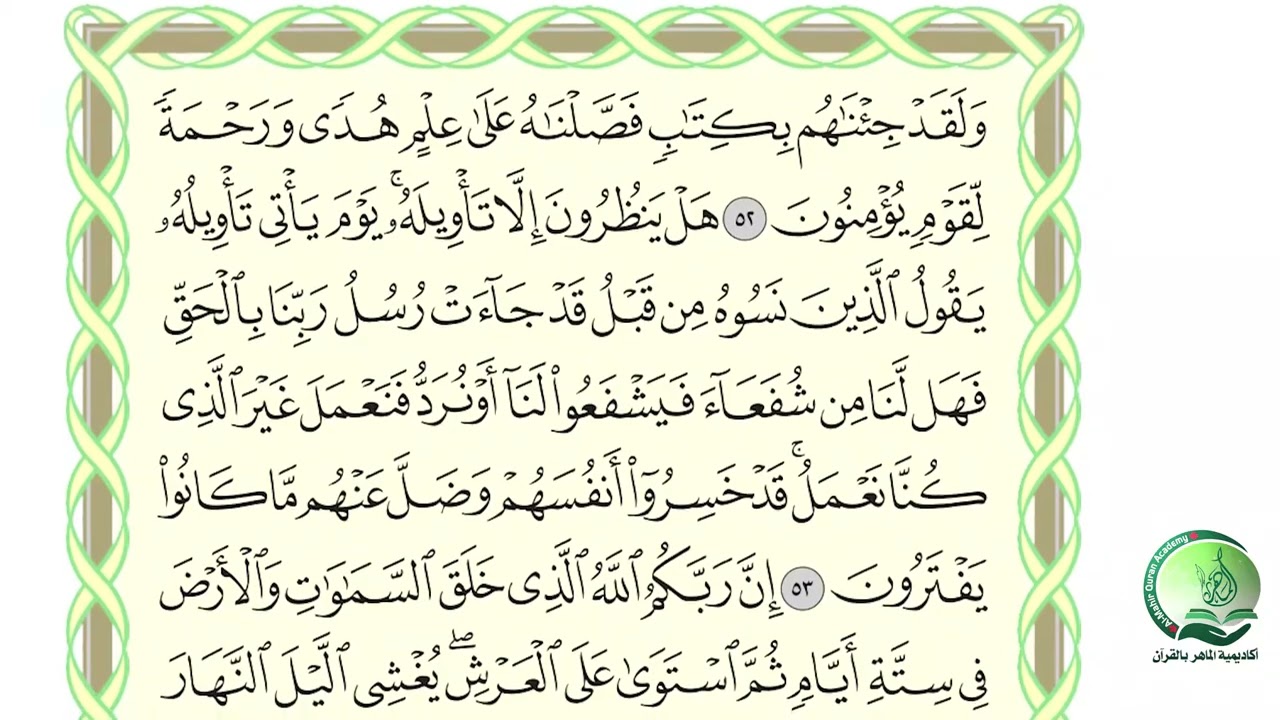 وَلَقَدۡ جِئۡنَٰهُم بِكِتَٰبٖ فَصَّلۡنَٰهُ عَلَىٰ عِلۡمٍ هُدٗى وَرَحۡمَةٗ
لِّقَوۡمٖ يُؤۡمِنُونَ ٥٢ هَلۡ يَنظُرُونَ إِلَّا تَأۡوِيلَهُۥۚ يَوۡمَ يَأۡتِي تَأۡوِيلُهُۥ
يَقُولُ ٱلَّذِينَ نَسُوهُ مِن قَبۡلُ قَدۡ جَآءَتۡ رُسُلُ رَبِّنَا بِٱلۡحَقِّ
فَهَل لَّنَا مِن شُفَعَآءَ فَيَشۡفَعُواْ لَنَآ أَوۡ نُرَدُّ فَنَعۡمَلَ غَيۡرَ ٱلَّذِي
كُنَّا نَعۡمَلُۚ قَدۡ خَسِرُوٓاْ أَنفُسَهُمۡ وَضَلَّ عَنۡهُم مَّا كَانُواْ
يَفۡتَرُونَ ٥٣ إِنَّ رَبَّكُمُ ٱللَّهُ ٱلَّذِي خَلَقَ ٱلسَّمَٰوَٰتِ وَٱلۡأَرۡضَ
فِي سِتَّةِ أَيَّامٖ ثُمَّ ٱسۡتَوَىٰ عَلَى ٱلۡعَرۡشِۖ يُغۡشِي ٱلَّيۡلَ ٱلنَّهَارَ
Al-Mahir Quran Academy
الماهر
أكاديمية الماهر بالقرآن